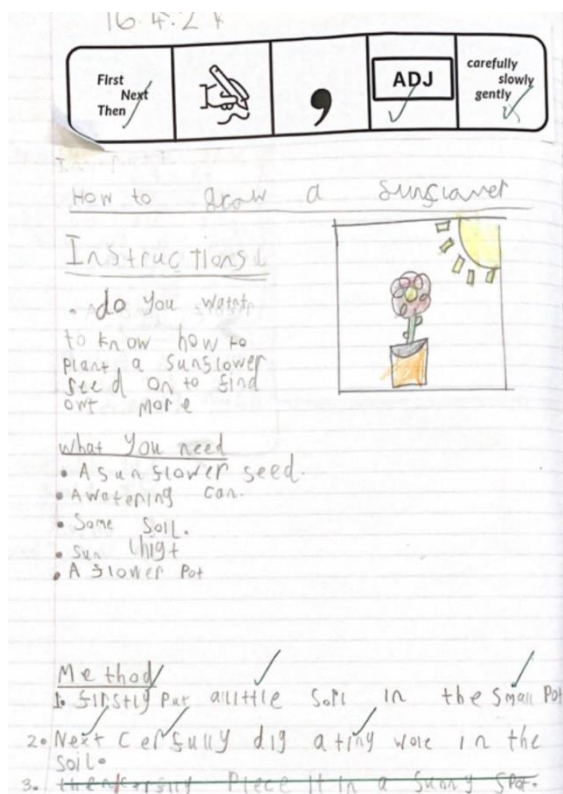 16.4.24
First
Next
Then
,
ADJ
carefully
slowly
gently
How to grow a sunflower
Instructions
• do you want
to know how to
plant a sunflower
seed on to find
out more
What you need
• A sunflower seed.
• A watering can.
• Some soil.
• Sun lhigt
• A flower Pot
Method
1. firstly put a little soil in the small Pot
2. Next cerfully dig a tiny wole in the
soil.
3. Piece it in a sunny spot.